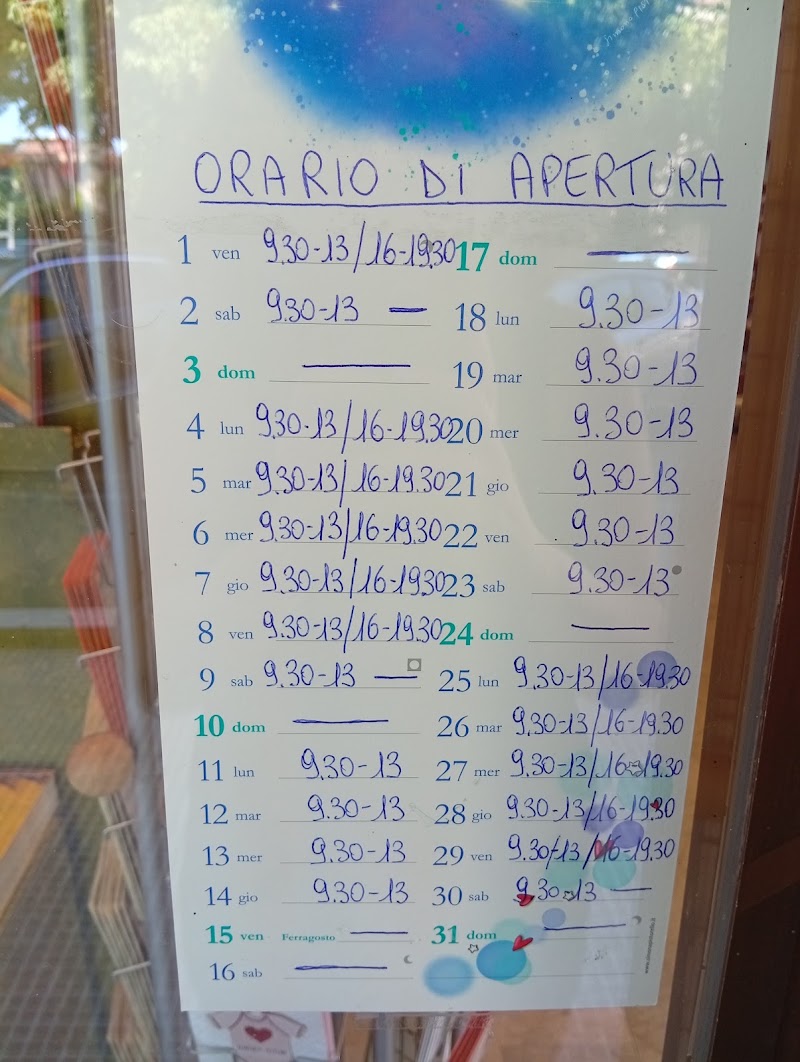 ORARIO DI APERTURA
1 ven 9.30-13/16-19.30
2 sab 9.30-13 —
3 dom —
4 lun 9.30-13/16-19.30
5 mar 9.30-13/16-19.30
6 mer 9.30-13/16-19.30
7 gio 9.30-13/16-19.30
8 ven 9.30-13/16-19.30
9 sab 9.30-13 —
10 dom —
11 lun 9.30-13
12 mar 9.30-13
13 mer 9.30-13
14 gio 9.30-13
15 ven Ferragosto —
16 sab —
17 dom —
18 lun 9.30-13
19 mar 9.30-13
20 mer 9.30-13
21 gio 9.30-13
22 ven 9.30-13
23 sab 9.30-13
24 dom —
25 lun 9.30-13/16-19.30
26 mar 9.30-13/16-19.30
27 mer 9.30-13/16-19.30
28 gio 9.30-13/16-19.30
29 ven 9.30-13/16-19.30
30 sab 9.30-13 —
31 dom —